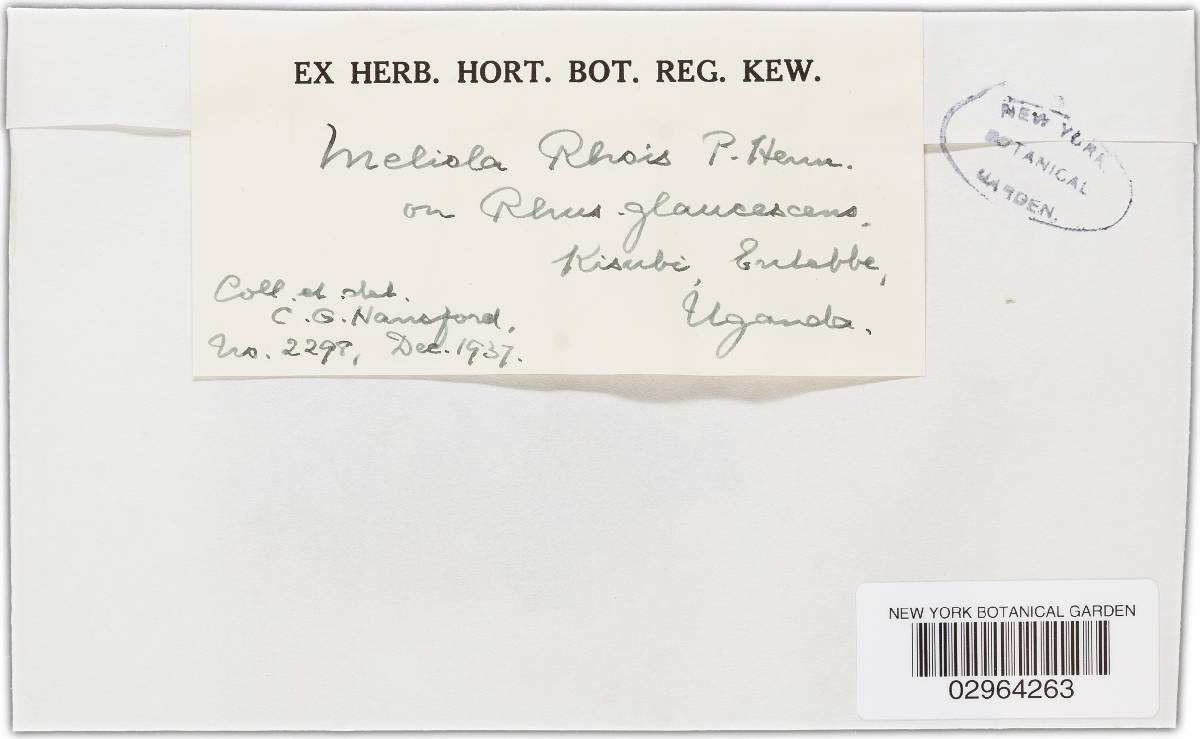 EX HERB. HORT. BOT. REG. KEW.
Meliola Rhois P. Henn.
on Rhus glaucescens,
Kisubi, Entebbe,
Uganda.
Coll. et det.
C. G. Hansford,
No. 2298, Dec. 1937.
NEW YORK
BOTANICAL
GARDEN.
NEW YORK BOTANICAL GARDEN
02964263